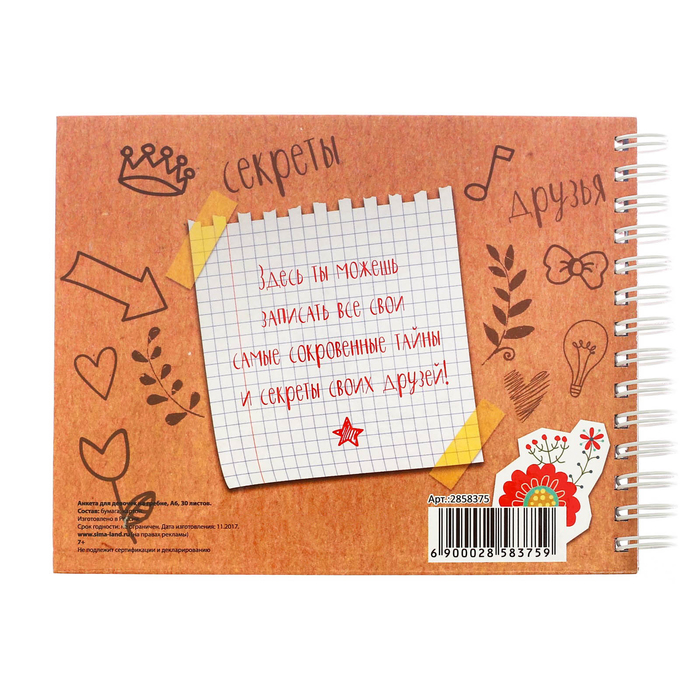 секреты
друзья
Здесь ты можешь
записать все свои
самые сокровенные тайны
и секреты своих друзей!
Анкета для девочек на гребне, А6, 30 листов.
Состав: бумага,
Изготовлено в
Срок годности: ограничен. Дата изготовления: 11.2017.
www.sima-land.ru (на правах рекламы)
7+
Не подлежит сертификации и декларированию
Арт.:2858375
6 900028 583759